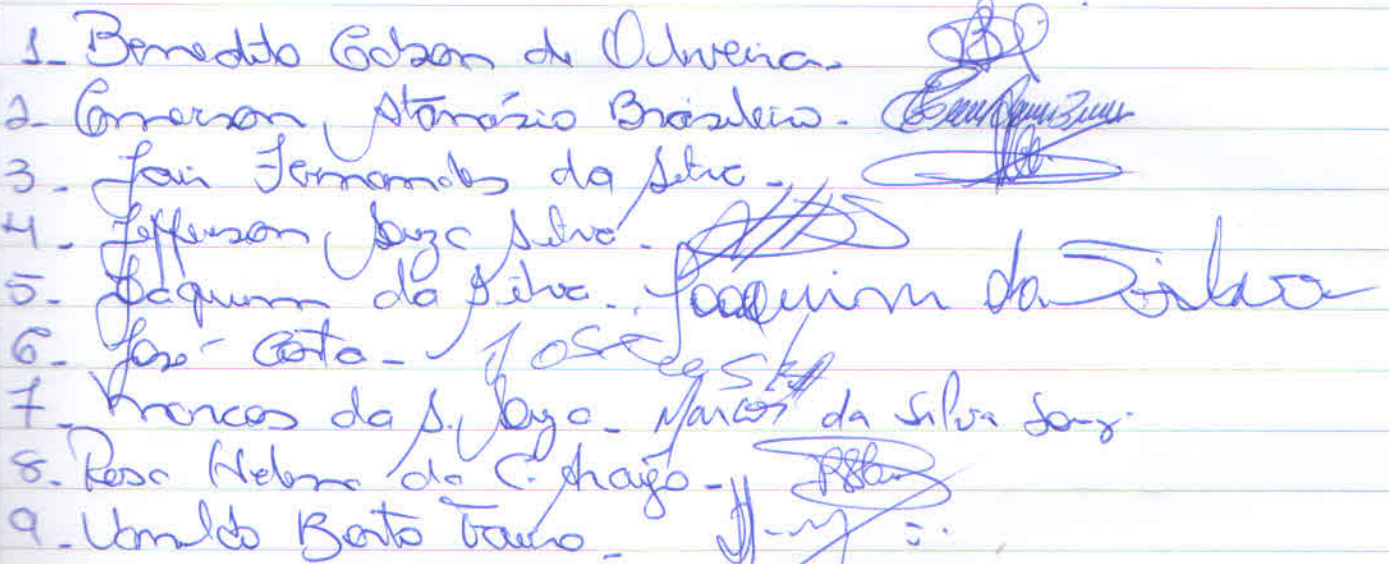 1- Benedito Edson de Oliveira.
2- Emerson Atanásio Brasileiro.
3- Jair Fernandes da Silva.
4- Jefferson Souza Silva.
5- Joaquim da Silva. Joaquim da Silva
6- José Costa - José Costa
7- Marcos da S. Souza - Marcos da Silva Souz
8- Rosa Helena da C. Aragão -
9- Bento